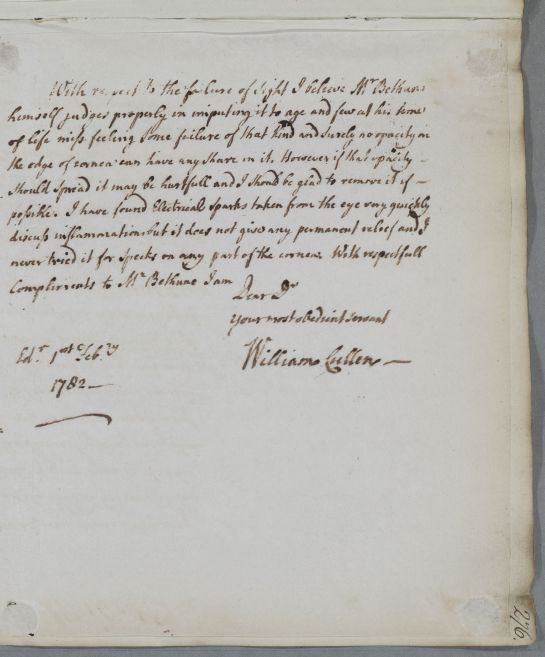 With respect to the failure of sight I believe Mr Bethune
himself judges properly in imputing it to age and few at his time
of life miss feeling some failure of that kind and Surely no opacity on
the edge of cornea can have any Share in it. However if that opacity
Should Spread it may be hurtfull and I Should be glad to remove it if —
possible. I have found Electrical Sparks taken from the eye very quickly
discuss inflammation but it does not give any permanent relief and I
never tried it for Specks on any part of the cornea. With respectfull
Compliments to Mr Bethune I am
Dear Dr
your most obedient Servant
William Cullen —
Edr. 1st Feb.ry
1782 —
276.